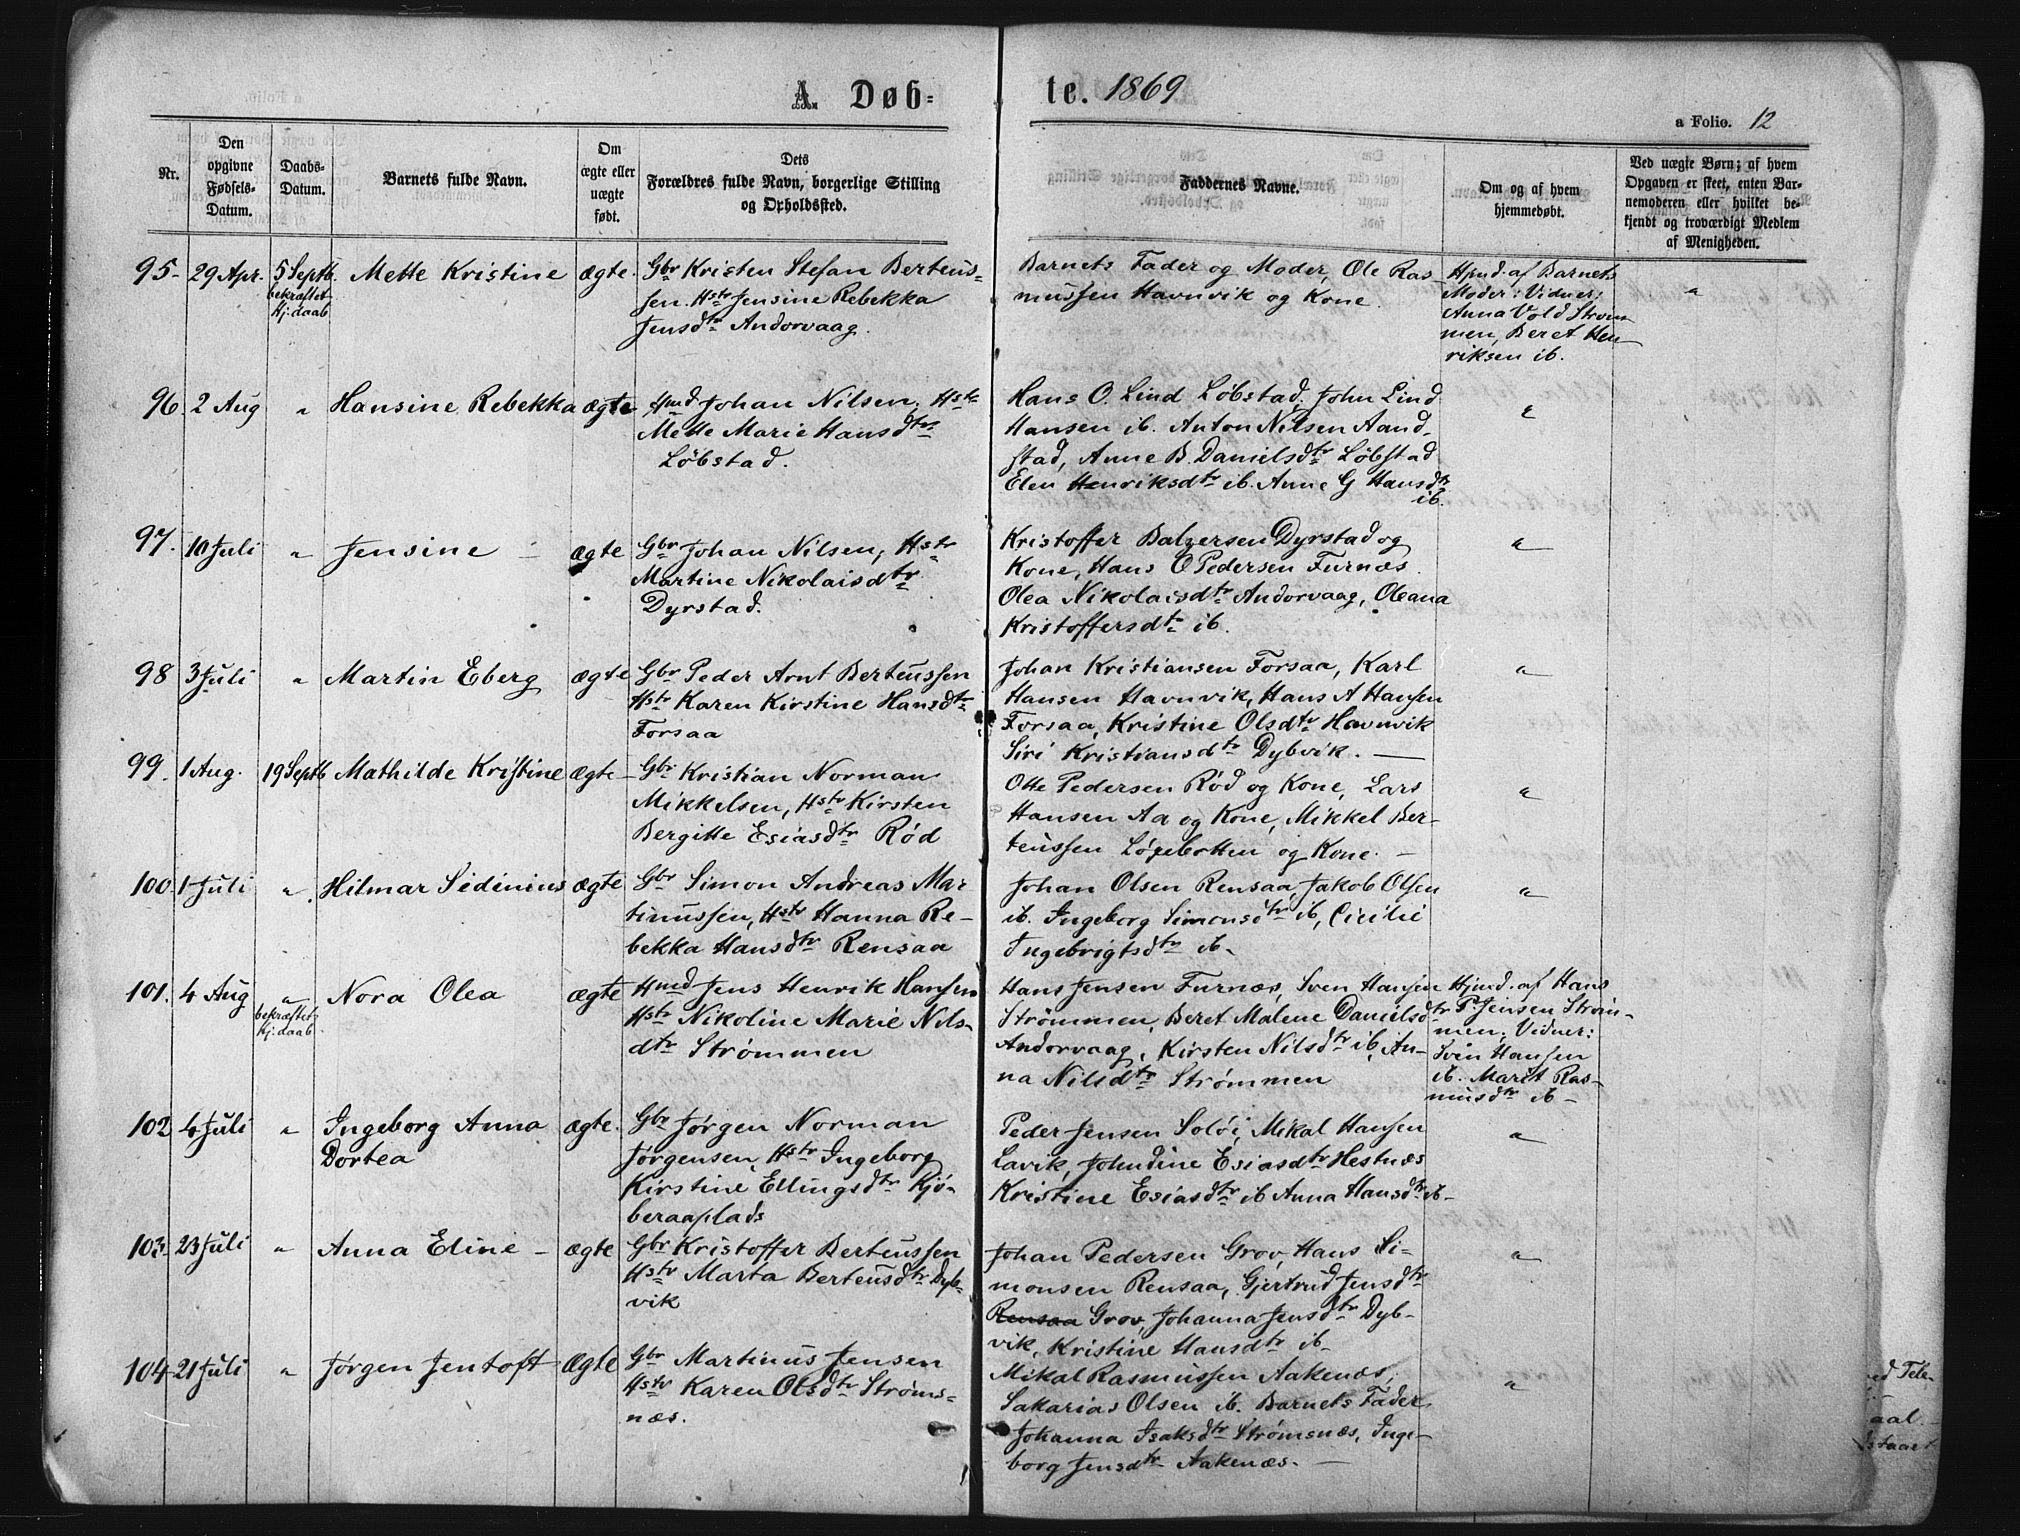 A Døb=te. 1869
a Folio. 12
Nr.
Den opgivne Fødsels-Datum.
Daabs-Datum.
Barnets fulde Navn.
Om ægte eller uægte født.
Dets Forældres fulde Navn, borgerlige Stilling og Opholdssted.
Faddernes Navne.
Om og af hvem hjemmedøbt.
Ved uægte Børn; af hvem Opgaven er skeet, enten Barnemoderen eller hvilket bekjendt og troværdigt Medlem af Menigheden.
95- 29 Apr. 5 Septb. Mette Kristine ægte.
bekræftet
Hj:daab
Gbr Kristen Stefan Berteus-
sen. Hstr Jensine Rebekka
Jensdtr Andorvaag.
Barnets Fader og Moder, Ole Ras
mussen Havnvik og Kone.
Hjmd. af Barnets
Moder: Vidner:
Anna Vold Strøm
men, Beret Hen
riksen ib.
"
96. 2 Aug " Hansine Rebekka ægte
Hmd Johan Nilsen, Hstr
Mette Marie Hansdtr
Løbstad.
Hans O. Lind Løbstad, John Lind
Hansen ib. Anton Nilsen Aand-
stad, Anne B. Danielsdtr Løbstad
Elen Henriksdtr ib. Anne G Hansdtr
ib.
"
97. 10 Juli " Jensine ægte
Gbr Johan Nilsen, Hstr
Martine Nikolaisdtr
Dyrstad.
Kristoffer Balzersen Dyrstad og
Kone, Hans O Pedersen Furnæs.
Olea Nikolaisdtr Andorvaag, Oleana
Kristoffersdtr ib.
"
98 3 Juli " Martin Eberg ægte
Gbr Peder Arnt Berteussen
Hstr Karen Kirstine Hansdtr
Forsaa
Johan Kristiansen Forsaa, Karl
Hansen Havnvik, Hans A Hansen
Forsaa, Kristine Olsdtr Havnvik
Siri Kristiansdtr Dybvik. —
"
99. 1 Aug. 19 Septb Mathilde Kristine ægte-
Gbr Kristian Norman
Mikkelsen, Hstr Kirsten
Bergitte Esiasdtr Rød
Otte Pedersen Rød og Kone, Lars
Hansen Aa og Kone, Mikkel Ber-
teussen Løgebotten og Kone. —
"
100. 1 Juli " Hilmar Sidinius ægte
Gbr Simon Andreas Mar
tinussen, Hstr Hanna Re-
bekka Hansdtr Rensaa
Johan Olsen Rensaa, Jakob Olsen
ib. Ingeborg Simonsdtr ib, Cicilie
Ingebrigtsdtr ib-
"
101. 4 Aug " Nora Olea ægte
bekræftet
Hj:daab
Hmd Jens Henrik Hansen
Hstr Nikoline Marie Nils-
dtr Strømmen
Hans Jensen Furnæs, Sven Hansen
Strømmen, Beret Malene Danielsdtr
Andorvaag, Kirsten Nilsdtr ib, An-
na Nilsdtr Strømmen
Hjmd. af Hans
P. Jensen Strøm-
men; Vidner:
Sven Hansen
ib. Marit Ras-
musdtr ib-
102 4 Juli " Ingeborg Anna ægte.
Dortea
Gbr Jørgen Norman
Jørgensen, Hstr Ingeborg
Kirstine Ellingsdtr Kjø-
beraaplads
Peder Jensen Soløi, Mikal Hansen
Lavik, Johndine Esiasdtr Hestnæs
Kristine Esiasdtr ib Anna Hansdtr ib-
"
103. 23 Juli " Anna Eline — ægte
Gbr Kristoffer Berteussen
Hstr Marta Berteusdtr Dyb-
vik
Johan Pedersen Grov, Hans Si-
monsen Rensaa, Gjertrud Jensdtr
Rensaa Grov, Johanna Jensdtr Dyb-
vik, Kristine Hansdtr ib-
"
104 21 Juli " Jørgen Jentoft ægte
Gbr Martinus Jensen
Hstr Karen Olsdtr Strøms-
næs.
Mikal Rasmussen Aakenæs,
Sakarias Olsen ib. Barnets Fader
Johanna Isaksdtr Strømsnæs, Inge-
borg Jensdtr Aakenæs. —
"